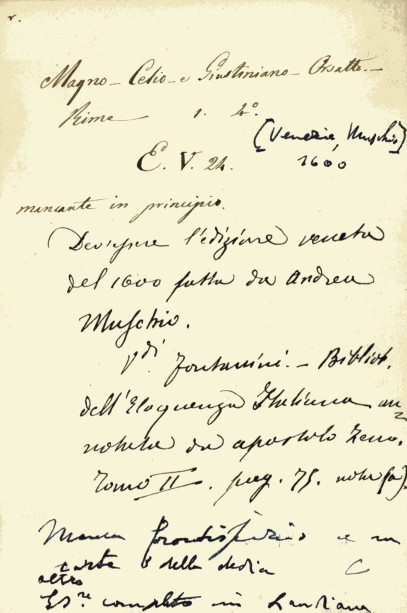 Magno - Celio - e Giustiniano - Orsatto. -
Rime — 1. 4º.
[Venezia, Muschio]
1600
E. V. 24.
mancante in principio.
Dev'essere l'edizione veneta
del 1600 fatta da Andrea
Muschio.
Vdi Fontanini. - Bibliot.
dell'Eloquenza Italiana an-
notata da Apostolo Zeno.
Tomo II. pag. 75. nota (a).
Manca frontispizio e un
carte e della dedica
altro
Es.re completo in Landiana